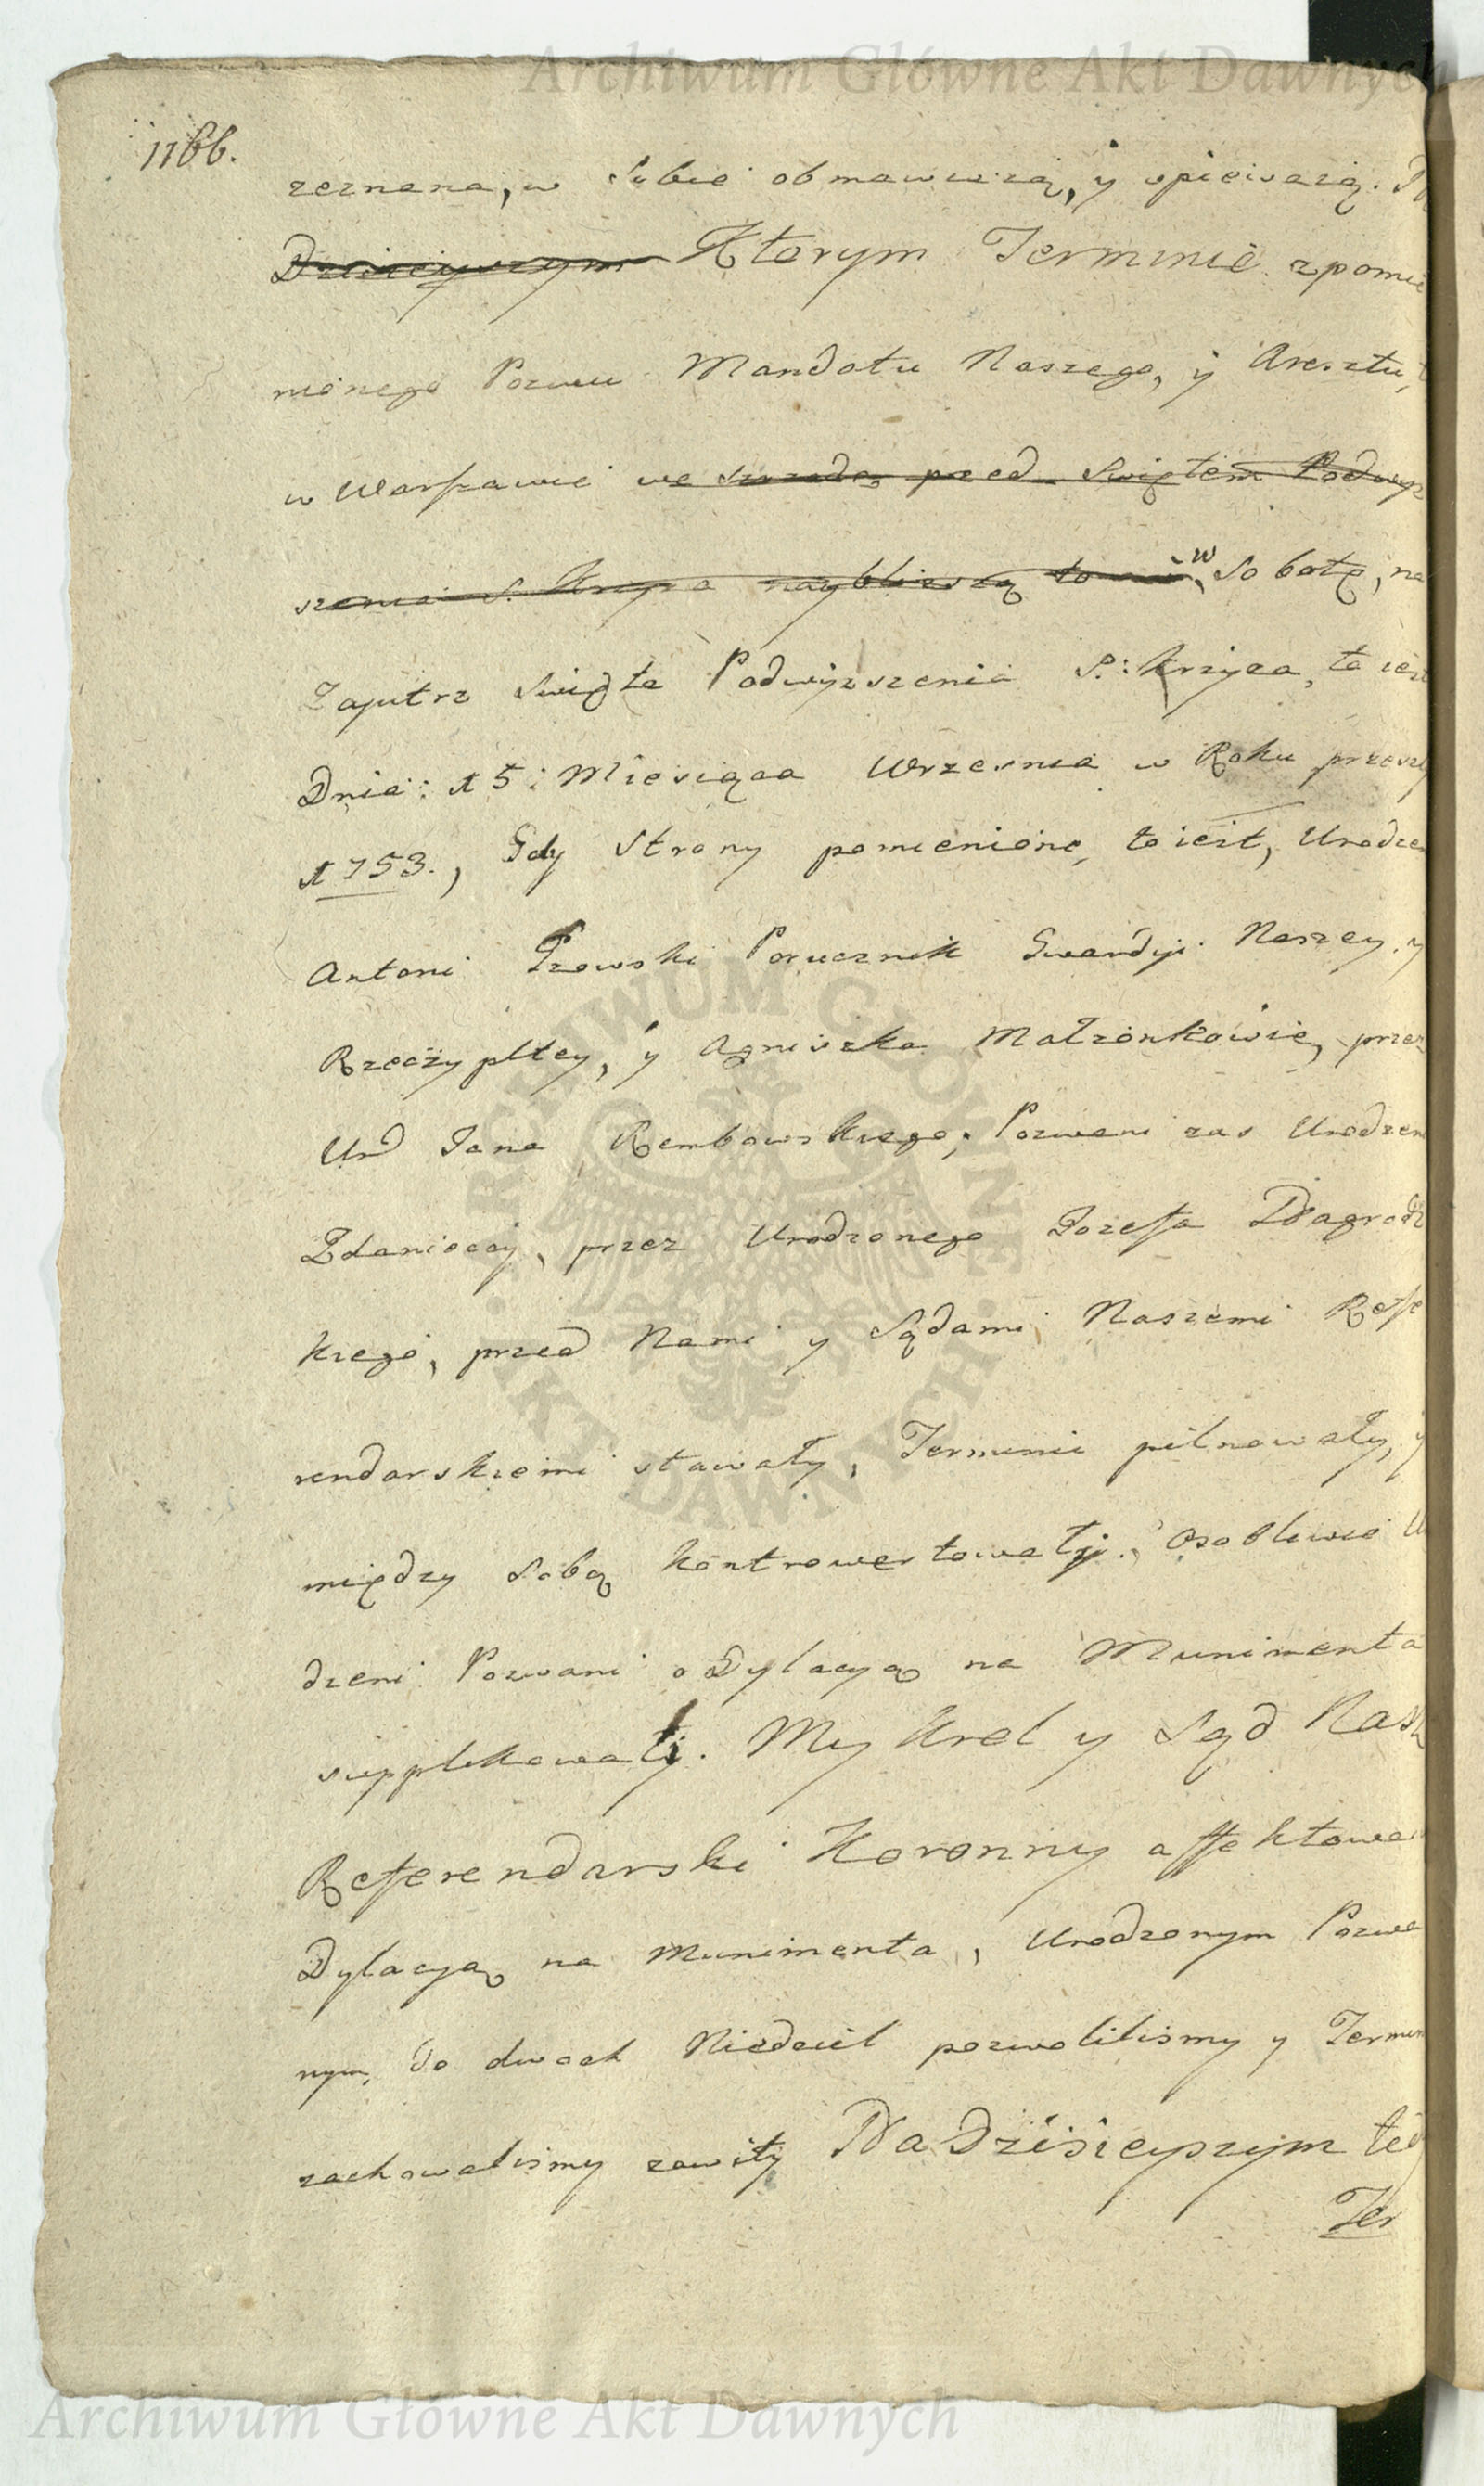 1166.
zeznana, w Sobie obmawiaią, y opiewaią.
Dzisieyszym Ktorym Terminie z pomie
nionego Pozwu Mandatu Naszego, y Aresztu,
w Warszawie we srzodę przed Swiętem Podwyz
szenia S. Krzyza nayblizszą to w Sobotę, na
Zajutrz Swięta Podwyzszenia S: Krzyza, to iest
Dnia: 15: Miesiąca Wrzesnia w Roku przeszły
1753., Gdy Strony pomienione, to iest, Urodzen
Antoni Przowski Porucznik Gwardyi Naszey y
Rzeczypltey, y Agniszka Małzonkowie, przez
Ur Jana Rembowskiego, Pozwani zas Urodzeni
Zdanioccy, przez Urodzonego Jozefa Nagrodz
kiego, przed Nami y Sądami Naszemi Refe
rendarskiemi stawały, Terminu pilnowały, y
między Sobą kontrowertowały. Osobliwie U
dzeni Pozwani o Dylacyą na Munimenta
supplikowali. My Krol y Sąd Nasz
Referendarski Koronny affektowa
Dylacyą na Munimenta, Urodzonym Pozwa
nym, do dwoch Niedziel pozwoliliśmy y Termin
zachowaliśmy zawity Na Dzisieyszym te
Ter
Archiwum Główne Akt Dawnych
ARCHIWUM GŁÓWNE AKT DAWNYCH
Archiwum Główne Akt Dawnych